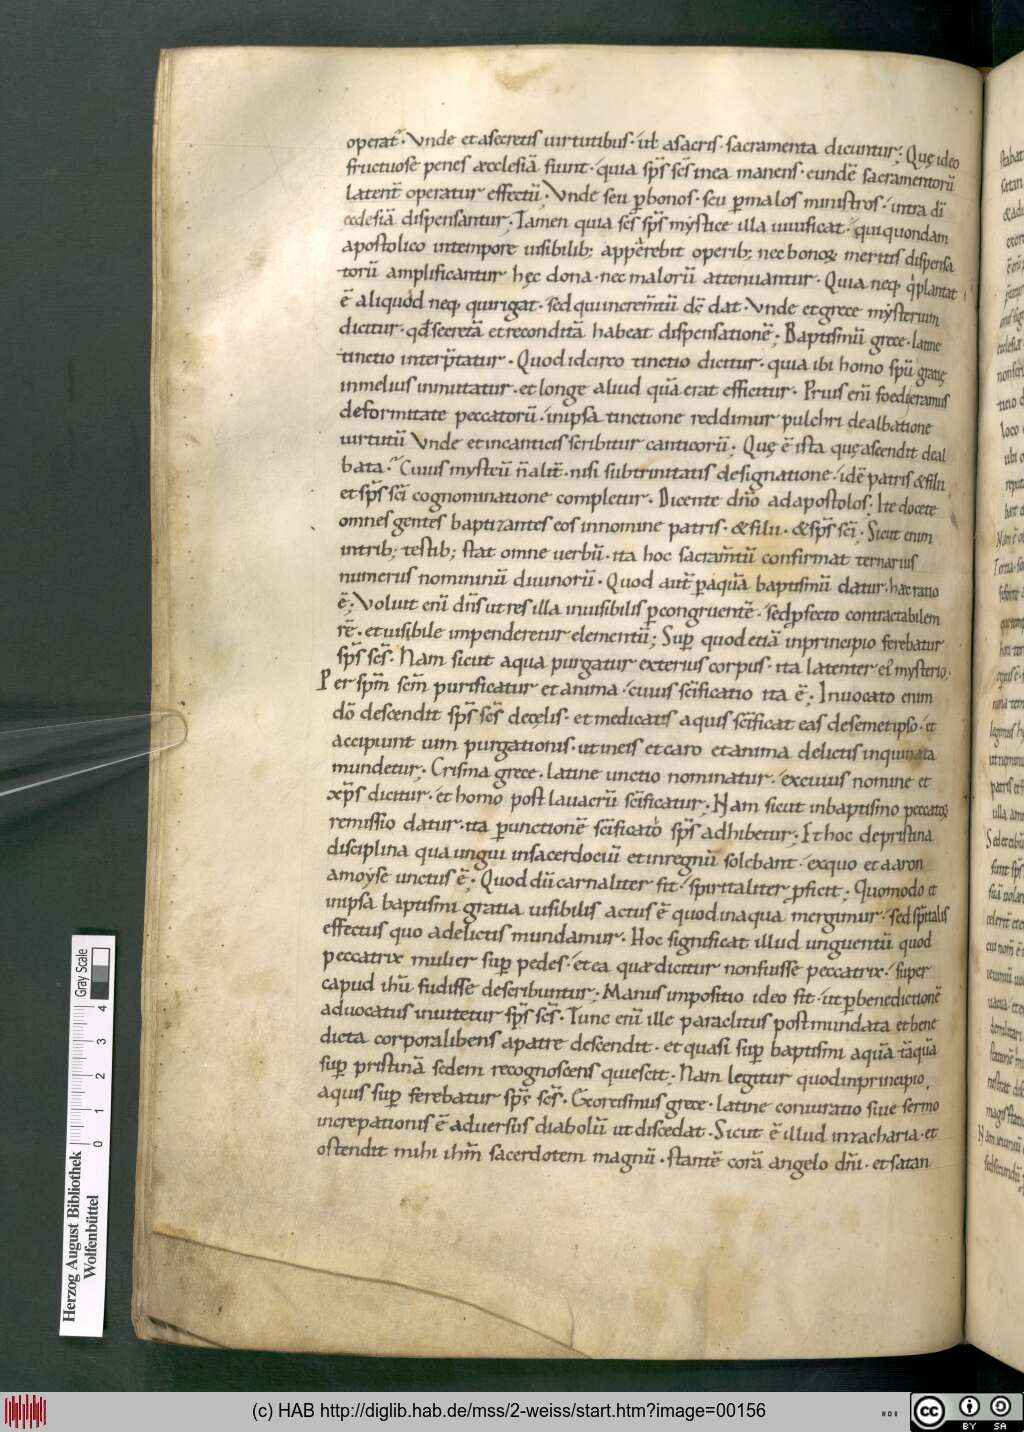 operat᷑. Vnde et asecretis uirtutibus. ut̄ asacris. sacramenta dicuntur; Quę ideo
fructuose penes æcclesiā fiunt. quia sp̄s sc̄s inea manens. eundē sacramentorū
latent̄ operatur effectū. Vnde seu ꝑbonos. seu ꝑmalos ministros. intra dī
ecclesiā dispensantur. Tamen quia sc̄s sp̄s mystice illa uiuificat. qui quondam
apostolico intempore uisibilib; apparebit operib; nec bonoꝝ meritis dispensa
torū amplificantur hęc dona. nec malorū attenuantur. Quia neq. qͥplantat
ē aliquod neq. quirigat. sed quiincrem̄tū dc̄ dat. Vnde et grece mysterium
dicitur. qd̄ secretā et reconditā habeat dispensationē; Baptismū grece. latine
tinctio interp̄tatur. Quod idcirco tinctio dicitur. quia ibi homo spū gratię
inmelius inmutatur. et longe aliud quā erat efficitur. Prius eni̅ foedi eramus
deformitate peccatorū. inipsa tinctione reddimur pulchri dealbatione
uirtutū Vnde et incanticis scribitur canticorū; Quę ē ista quę ascendit deal
bata. Cuius mysteriū n̄ alit̄. nisi subtrinitatis designatione. idē patris & filii
et sp̄s sc̄i cognominatione completur. Dicente dn̄o ad apostolos; Ite docete
omnes gentes baptizantes eos innomine patris. & filii. & sp̄s sc̄i; Sicut enim
intrib; testib; stat omne uerbū. ita hoc sacram̄tū confirmat ternarius
numerus nominum̄ diuinorū. Quod aut̄ ꝑaquā baptismū datur. hæc ratio
ē; Voluit eni̅ dn̄s ut res illa inuisibilis ꝑcongruentē. sed ꝓfecto contractabilem
rē. et uisibile impenderetur elementū; Suꝑ quod etiā inprincipio ferebatur
sp̄s sc̄s. Nam sicut aqua purgatur exterius corpus. ita latenter ei᷑ mysterio.
Per spm̄ scm̄ purificatur et anima. cuius sc̄ificatio ita ē; Inuocato enim
dō descendit sp̄s sc̄s decęlis. et medicatis aquis sc̄ificat eas desemetipso. et
accipiunt uim purgationis. ut ineis et caro et anima delictis inquinata
mundetur; Crisma grece. latine unctio nominatur. excuius nomine et
xp̄s dicitur. et homo post lauacrū sc̄ificatur; Nam sicut inbaptismo peccatoꝝ
remissio datur. ita ꝑunctionē sc̄ificatio sp̄s adhibetur; Et hoc depristina
disciplina qua ungui insacerdociū et inregnū solebant. exquo et aaron
amoyse unctus ē. Quod dū carnaliter fit. spiritaliter ꝓficit; Quomodo et
inipsa baptismi gratia uisibilis actus ē quod inaqua mergimur. sed sp̄italis
effectus quo adelictis mundamur. Hoc significat illud unguentū quod
peccatrix mulier suꝑ pedes. et ea quæ dicitur non fuisse peccatrix. super
capud ihū fudisse describuntur; Manus impositio ideo fit. ut ꝑbenedictionē
aduocatus inuitetur sp̄s sc̄s. Tunc eni̅ ille paraclitus post mundata et bene
dicta corpora libens apatre descendit. et quasi suꝑ baptismi aquā tāquā
suꝑ pristinā sedem recognoscens quiescit; Nam legitur quod inprincipio
aquis suꝑ ferebatur sp̄s sc̄s. Exorcismus grece. latine coniuratio siue sermo
increpationis ē aduersus diabolū ut discedat. Sicut ē illud inzacharia. et
ostendit mihi ihm̄ sacerdotem magnū. stantē corā angelo dn̄i. et satan
Gray Scale
0 1 2 3 4
Herzog August Bibliothek
Wolfenbüttel
(c) HAB http://diglib.hab.de/mss/2-weiss/start.htm?image=00156
cc
BY SA